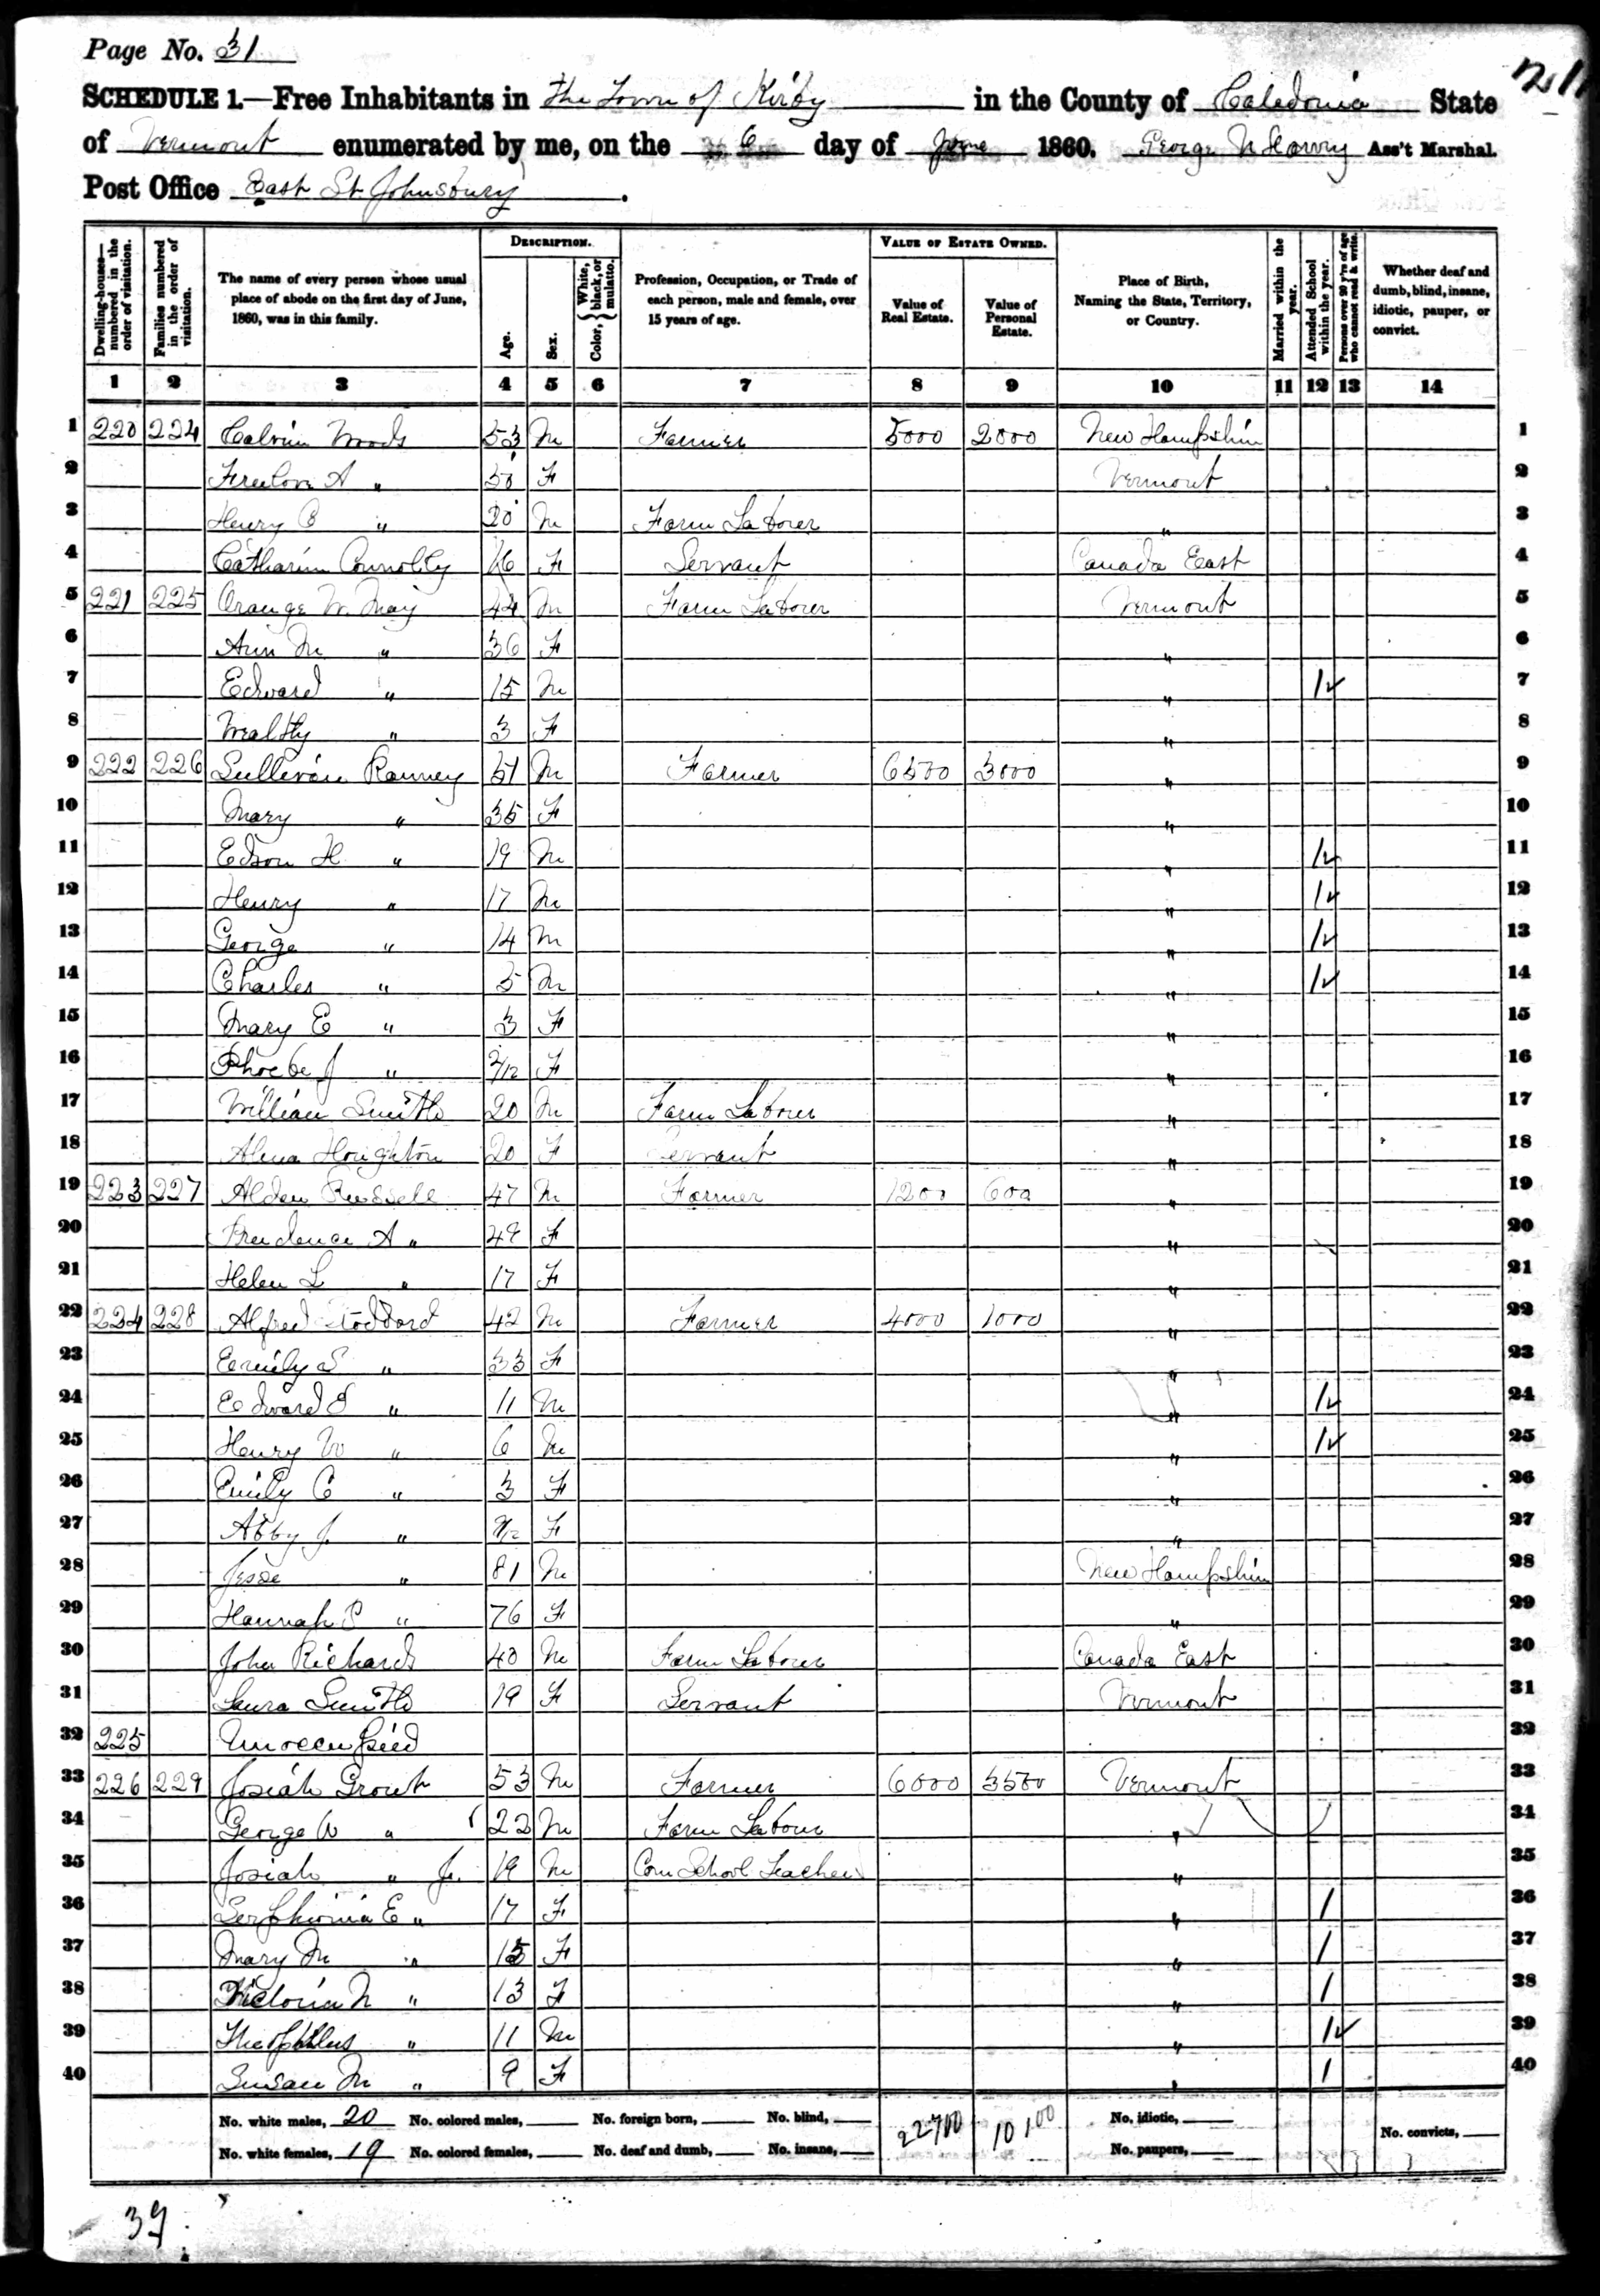 Page No. 31
SCHEDULE 1.—Free Inhabitants in The Town of Kirby in the County of Caledonia State
of Vermont enumerated by me, on the 6 day of June 1860. George N Ass't Marshal.
Post Office East St Johnsbury.
Dwelling-houses—numbered in the order of visitation. Families numbered in the order of visitation. The name of every person whose usual place of abode on the first day of June, 1860, was in this family. DESCRIPTION. Age. Sex. Color, { White, black, or mulatto. Profession, Occupation, or Trade of each person, male and female, over 15 years of age. VALUE OF ESTATE OWNED. Value of Real Estate. Value of Personal Estate. Place of Birth, Naming the State, Territory, or Country. Married within the year. Attended School within the year. Persons over 20 y'rs of age who cannot read & write. Whether deaf and dumb, blind, insane, idiotic, pauper, or convict.
1 2 3 4 5 6 7 8 9 10 11 12 13 14
1 220 224 Calvin Woods 53 M Farmer 5000 2000 New Hampshire 1
2 Freelove A " 50 F Vermont 2
3 Henry C " 20 M Farm Laborer " 3
4 Catharine Connolly 16 F Servant Canada East 4
5 221 225 Orange W. May 44 M Farm Laborer Vermont 5
6 Ann M " 36 F " 6
7 Edward " 15 M " 1 7
8 Wealthy " 3 F " 8
9 222 226 Sullivan Ranney 51 M Farmer 6500 3000 " 9
10 Mary " 35 F " 10
11 Edson H " 19 M " 1 11
12 Henry " 17 M " 1 12
13 George " 14 M " 1 13
14 Charles " 5 M " 1 14
15 Mary E " 3 F " 15
16 Phoebe J " 2/12 F " 16
17 William Smith 20 M Farm Laborer " 17
18 Alma Houghton 20 F Servant " 18
19 223 227 Alden Russell 47 M Farmer 1200 600 " 19
20 Prudence A " 49 F " 20
21 Helen L " 17 F " 21
22 224 228 Alfred Stoddard 42 M Farmer 4000 1000 " 22
23 Emily S " 33 F " 23
24 Edward S " 11 M " 1 24
25 Henry W " 6 M " 1 25
26 Emily C " 3 F " 26
27 Abby J. " F " 27
28 Jesse " 81 M New Hampshire 28
29 Hannah P " 76 F " 29
30 John Richards 40 M Farm Laborer Canada East 30
31 Laura Smith 19 F Servant Vermont 31
32 225 Unoccupied 32
33 226 229 Josiah Grout 53 M Farmer 6000 3500 Vermont 33
34 George W " 22 M Farm Labour " 34
35 Josiah " Jr. 19 M Com School Teacher " 35
36 Serphronia E " 17 F " 1 36
37 Mary M " 15 F " 1 37
38 Victoria N " 13 F " 1 38
39 Theophilus " 11 M " 1 39
40 Susan M " 9 F " 1 40
No. white males, 20 No. colored males, No. foreign born, No. blind, 22700 10100 No. idiotic,
No. white females, 19 No. colored females, No. deaf and dumb, No. insane, No. paupers, No. convicts,
39